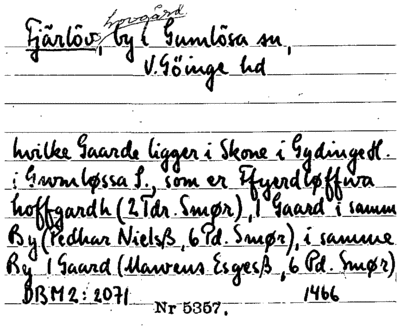 hovgård
Fjärlöv, by i Gumlösa sn,
V. Göinge hd
hvilke Gaarde ligger i Skone i Gydinge H.
i Gwmløssa S., som er Ffyerdløffwa
hoffgardh (2 Tdr. Smør), 1 Gaard i samm
By (Pedhar Nielsß, 6 Pd. Smør), i samme
By 1 Gaard (Mawens Esgesß, 6 Pd. Smør)
DBM2: 2071 1466
Nr 5357.